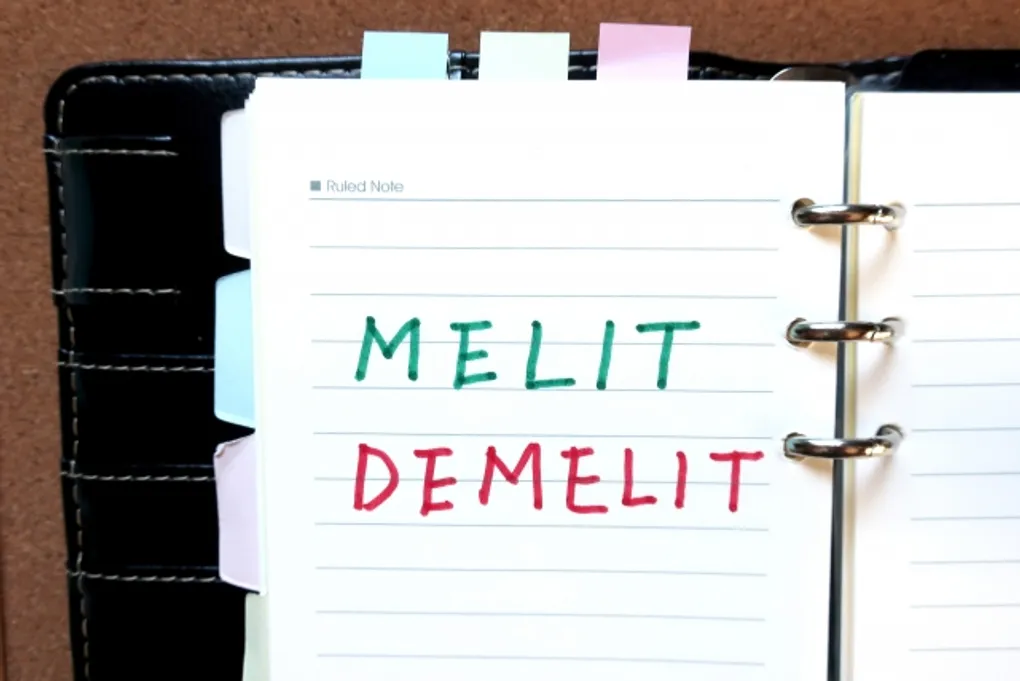 Ruled Note
MELIT
DEMELIT